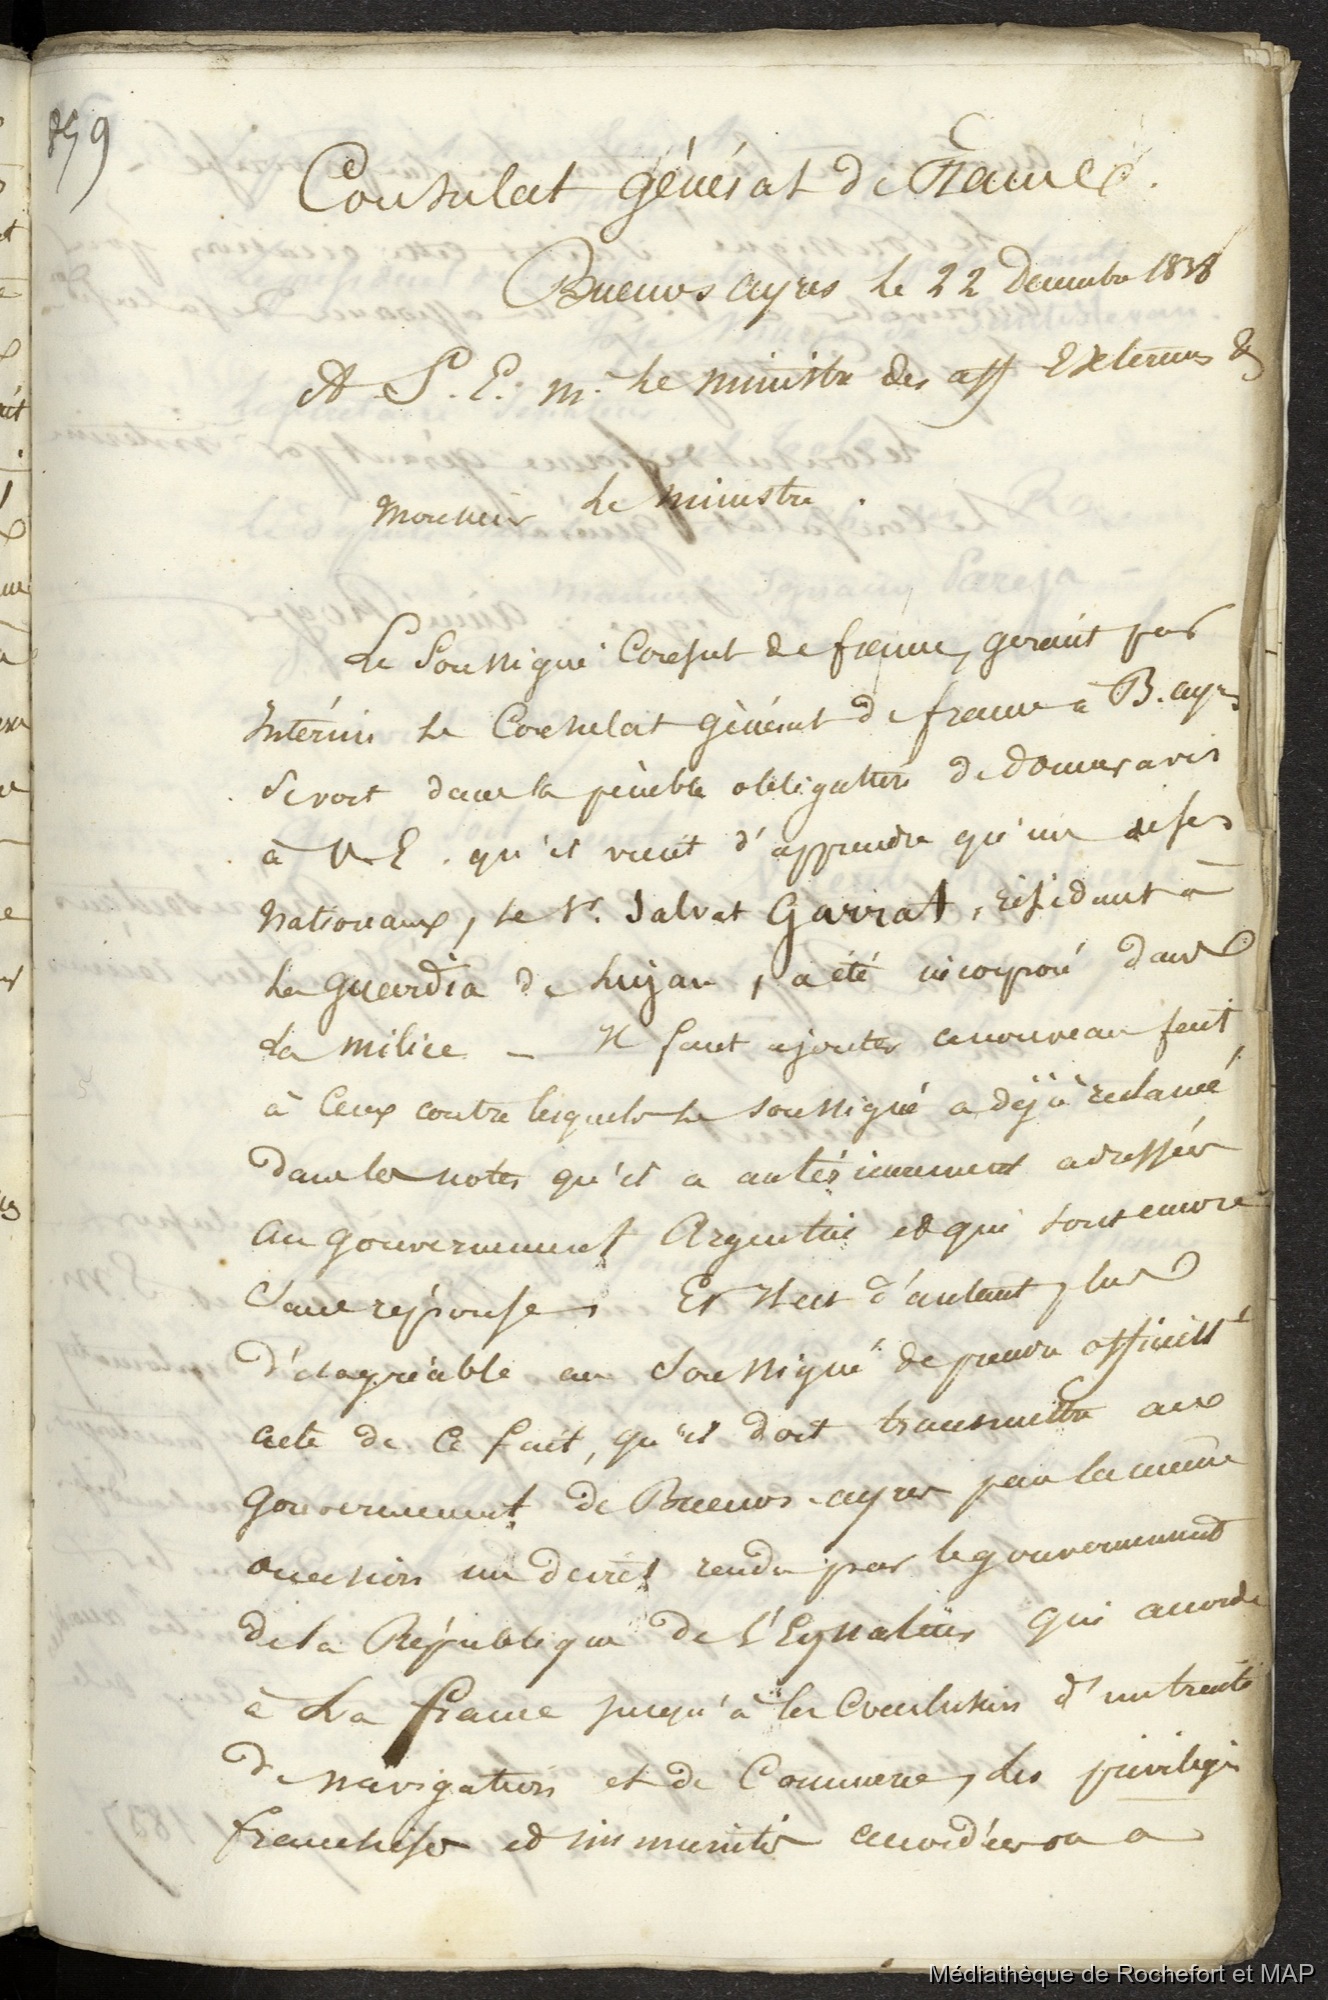 859
Consulat général de France.
Buenos ayres le 22 Decembre 1838
A S. E. Mr. le ministre des aff Exterieures &
Monsieur le Ministre.
Le Soussigné Consul de france, gerant par
Intérim le Consulat général de france à B. ayres
se voit dans la pénible obligation de donner avis
à V. E. qu'il vient d'apprendre qu'un de ses
Nationaux, le Sr. Salvat Garrat, résidant à
la Guardia de Lujan, a été incorporé dans
la milice — Il faut ajouter ce nouveau fait
à Ceux contre lesquels le soussigné a déjà réclamé
dans les notes qu'il a antérieurement adressées
au gouvernement Argentin et qui sont encore
sans réponse. Et Il est d'autant plus
désagréable au Soussigné de prendre officiellt
acte de ce fait, qu'il doit transmettre au
Gouvernement de Buenos-ayres par la même
occasion un decret rendu par le gouvernement
de la République de l' qui accorde
à la france jusqu'à la Conclusion d'un traité
de navigation et de Commerce, les privilèges
franchises et immunités accordées ou a
Médiathèque de Rochefort et MAP